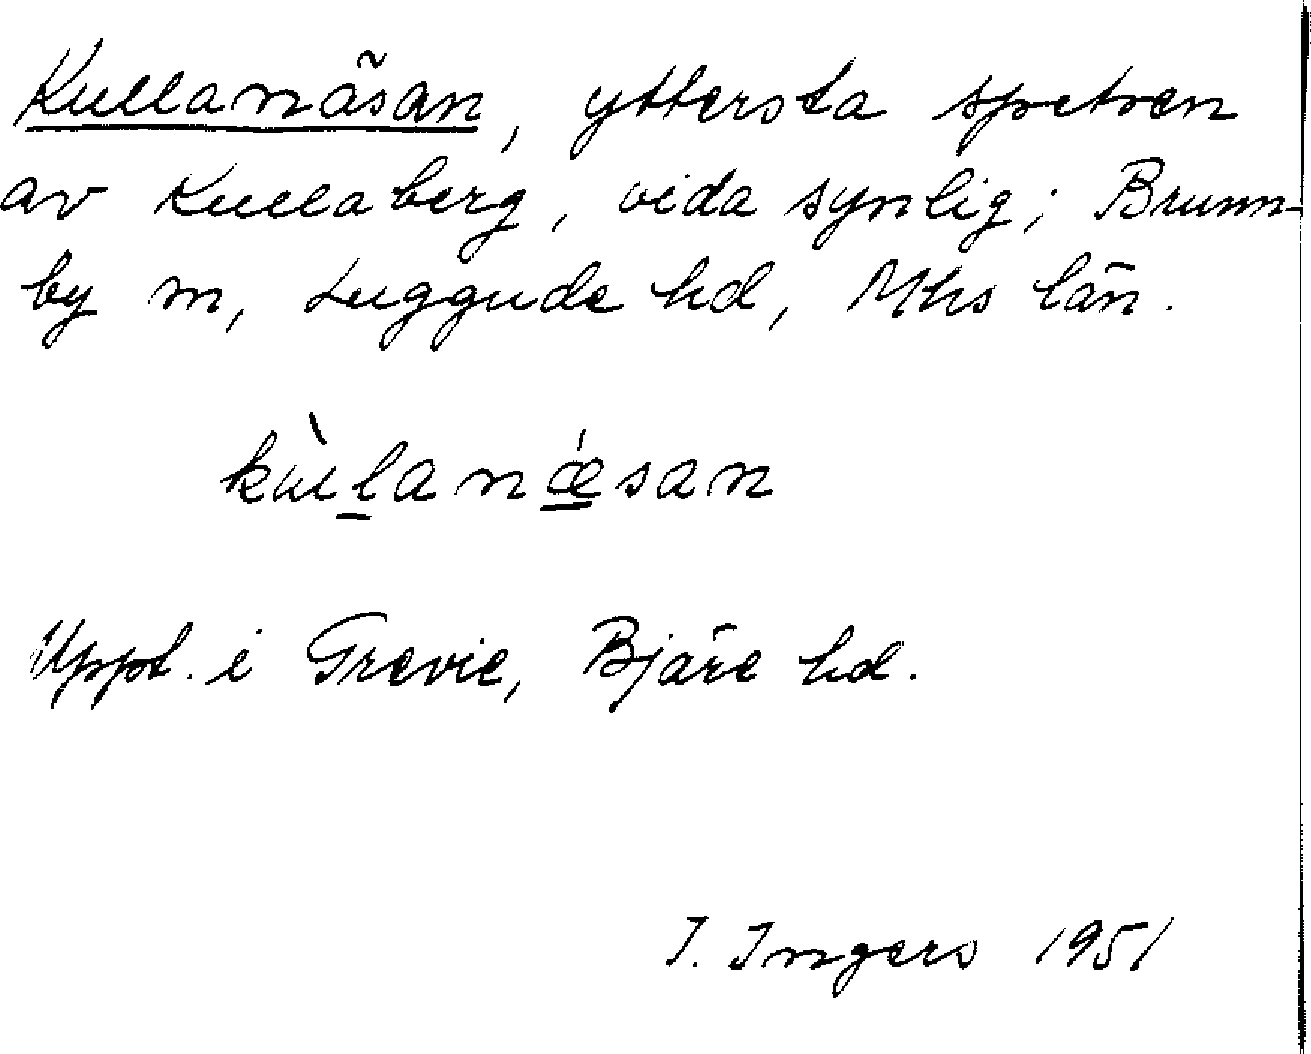 Kullanäsan, yttersta spetsen
av Kullaberg, vida synlig; Brunn-
by sn, Luggude hd, Mhs län.
kùllanǽsan
Uppt. i Grevie, Bjäre hd.
I. Ingers 1951